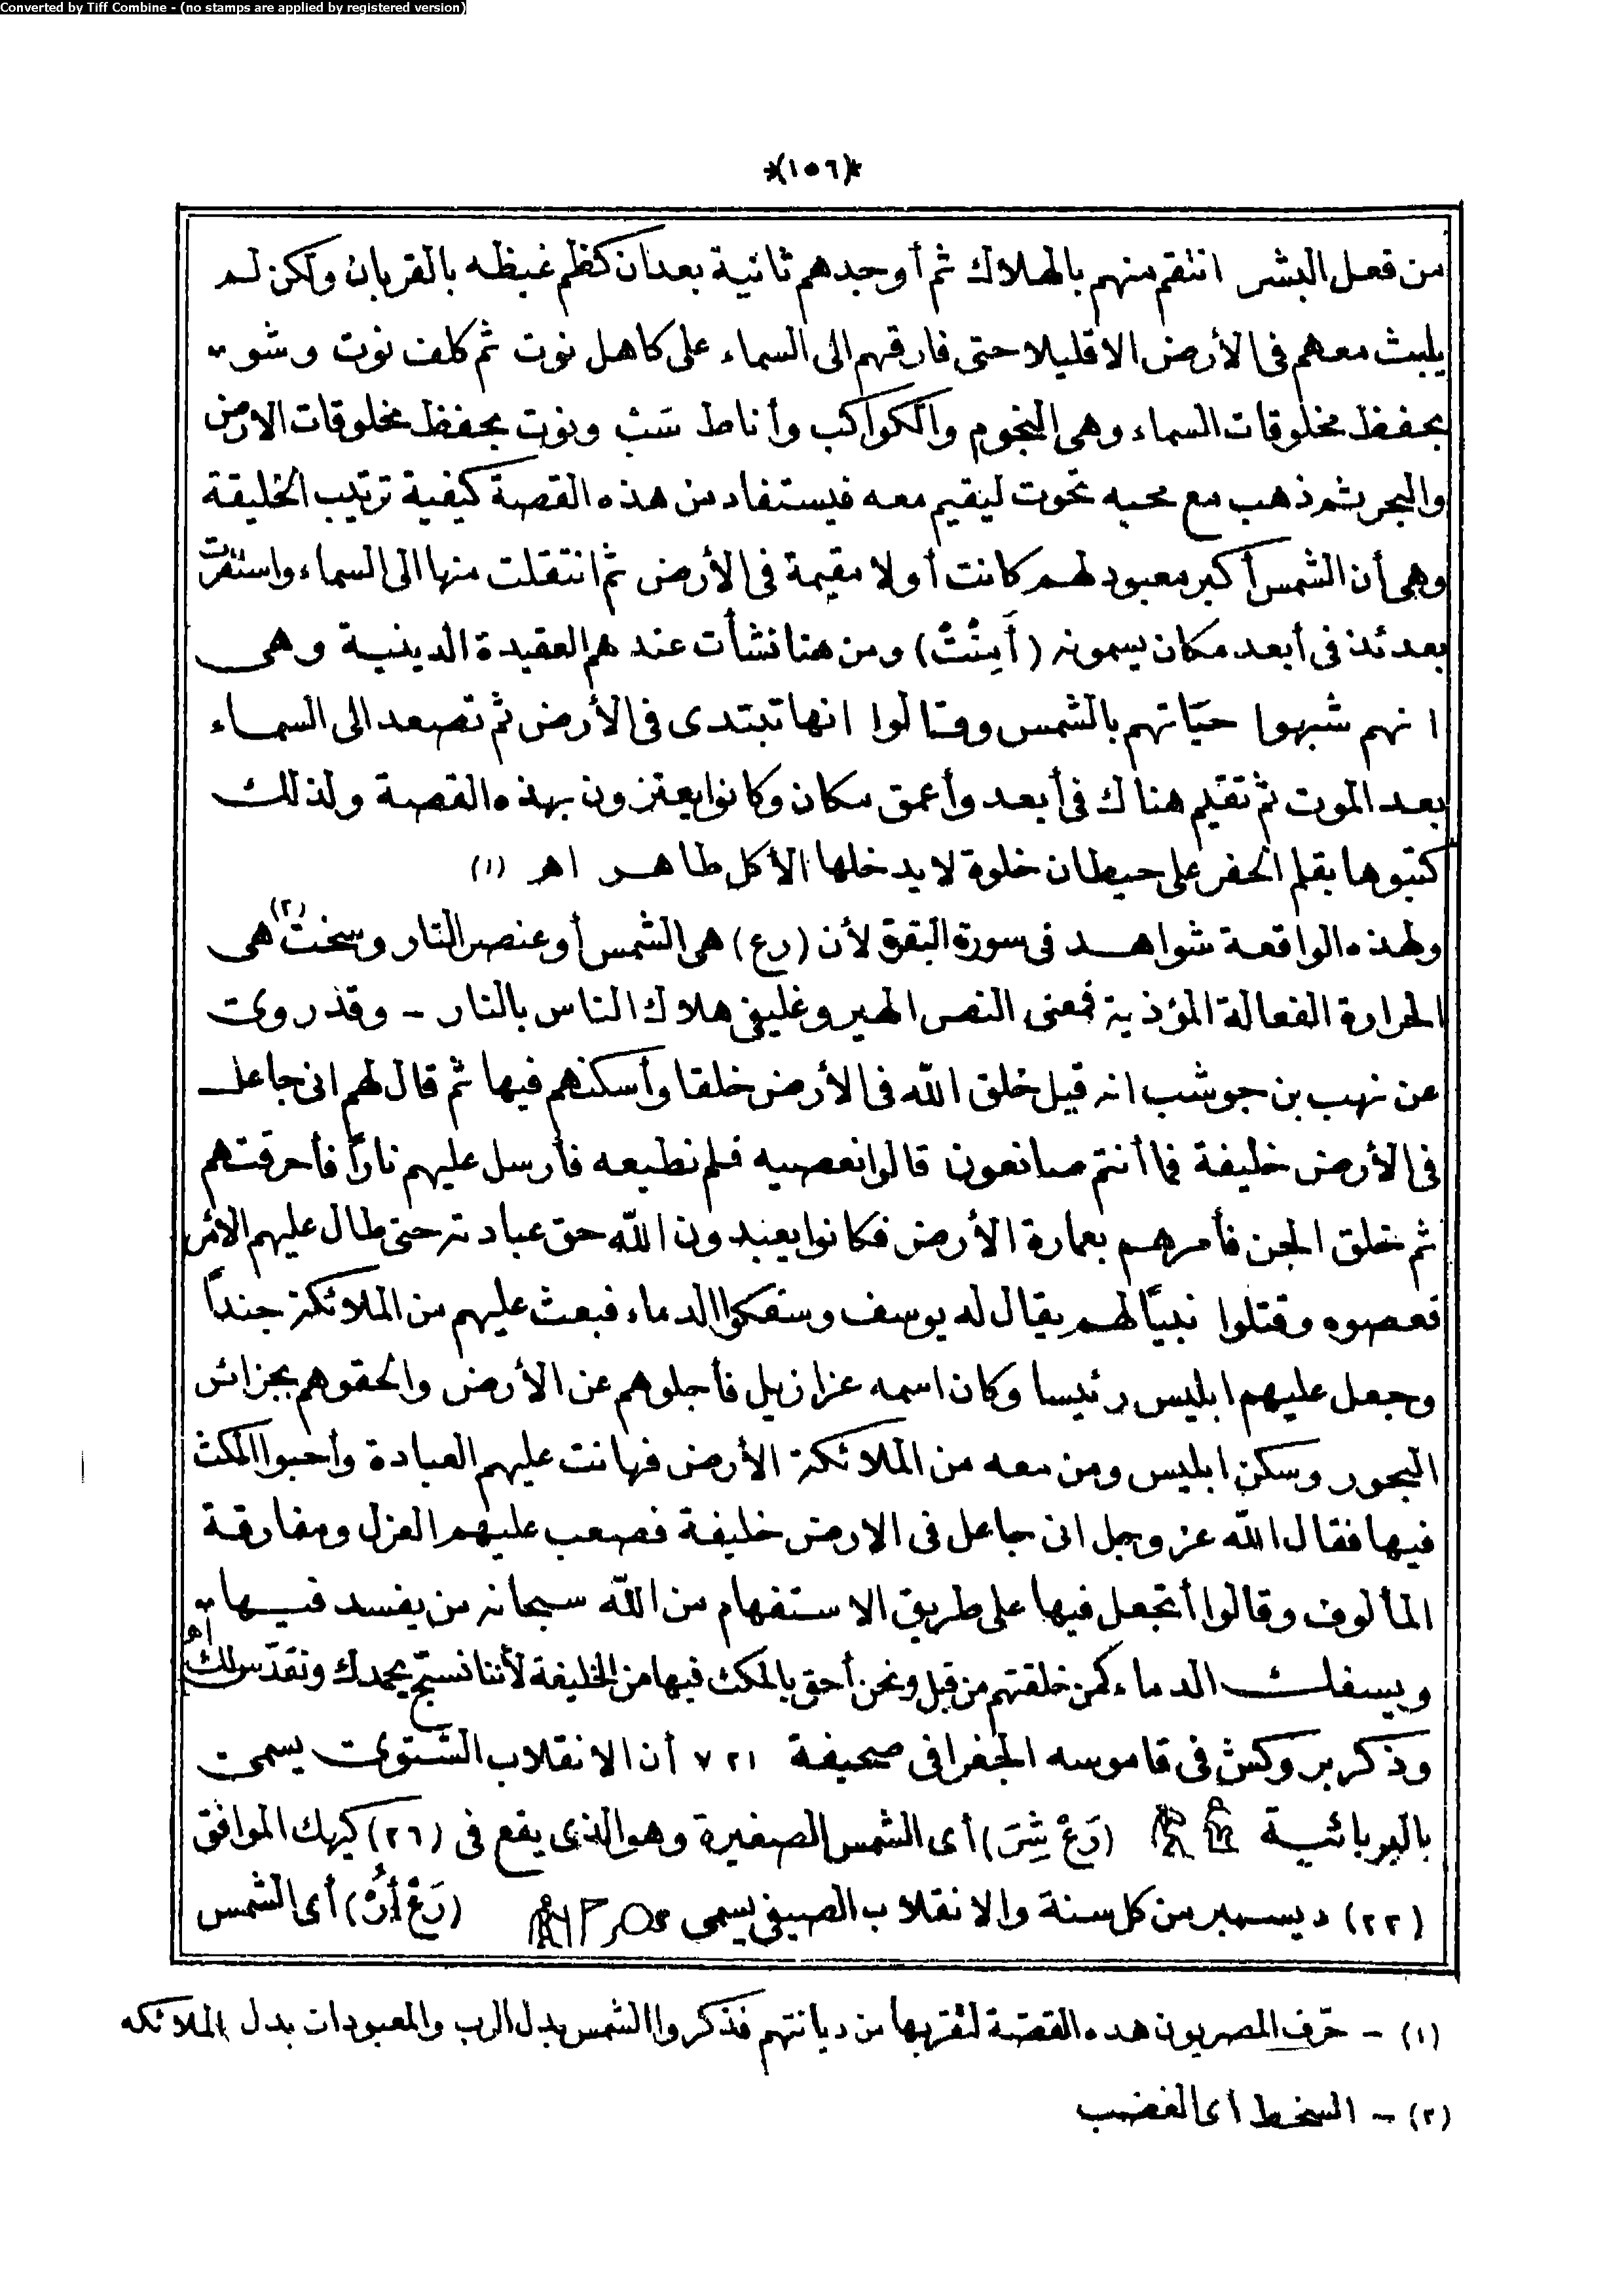 Converted by Tiff Combine - (no stamps are applied by registered version)
*(١٥٦)*
من فعل البشر انتقم منهم بالهلاك ثم أوجدهم ثانية بعدان كظم غيظه بالقربان ولكن لم
يلبث معهم فى الأرض الاقليلا حتى فارقهم الى السماء على كاهل نوت ثم كلف نوت وشو
بحفظ مخلوقات السماء وهى النجوم والكواكب وأناط سَبْ ونوت بحفظ مخلوقات الارض
والبحر ثم ذهب مع محبه تحوت ليقيم معه فيستفاد من هذه القصة كيفية ترتيب الخليقة
وهى أن الشمس أكبر معبود لهم كانت أولا مقيمة فى الأرض ثم انتقلت منها الى السماء واستقرت
بعدئذ فى أبعد مكان يسمونه (أَمِنْتْ) ومن هنا نشأت عندهم العقيدة الدينية وهى
انهم شبهوا حياتهم بالشمس وقالوا انها تبتدى فى الأرض ثم تصعد الى السماء
بعد الموت ثم تقيم هناك فى أبعد وأعمق مكان وكانوا يعتزون بهذه القصة ولذلك
كتبوها بقلم الحفر على حيطان خلوة لا يدخلها الأكل طاهر اهـ (١)
ولهذه الواقعة شواهد فى سورة البقرة لأن (رع) هى الشمس أو عنصر النار وسخت (٢) هى
الحرارة الفعالة المؤذية فمعنى النص الهيروغليفى هلاك الناس بالنار - وقد روى
عن نهب بن جوشب انه قيل خلق الله فى الأرض خلقا وأسكنهم فيها ثم قال لهم انى جاعل
فى الأرض خليفة فما أنتم صانعون قالوا نعصيه فلم نطيعه فأرسل عليهم نارًا فأحرقتهم
ثم خلق الجن فأمرهم بعمارة الأرض فكانوا يعبدون الله حق عبادته حتى طال عليهم الأمر
فعصوه وقتلوا نبيًا لهم يقال له يوسف وسفكوا الدماء فبعث عليهم من الملائكة جنداً
وجعل عليهم ابليس رئيسا وكان اسمه عزازيل فأجلوهم عن الأرض والحقوهم بجزائر
البحور وسكن ابليس ومن معه من الملائكة الأرض فهانت عليهم العبادة وأحبوا المكث
فيها فقال الله عز وجل انى جاعل فى الارض خليفة فصعب عليهم العزل ومفارقة
المألوف وقالوا أتجعل فيها على طريق الاستفهام من الله سبحانه من يفسد فيها
ويسفك الدماء كمن خلقتهم من قبل ونحن أحق بالمكث فيها من الخليفة لأننا نسبّح بحمدك ونقدّس لك اهـ
وذكر بروكش فى قاموسه الجغرافى صحيفة ٧٢١ أن الانقلاب الشتوى يسمى
بالبربائية (رَعْ شِرَ) أى الشمس الصغيرة وهو الذى يقع فى (٢٦) كيهك الموافق
(٢٢) ديسمبر من كل سنة والانقلاب الصيفى يسمى (رَعْ أُرْ) أى الشمس
(١) - حرّف المصريون هده القصّة لتقربها من ديانتهم فذكروا الشمس بدل الرب والمعبودات بدل الملائكه
(٢) - السخط اى الغضب